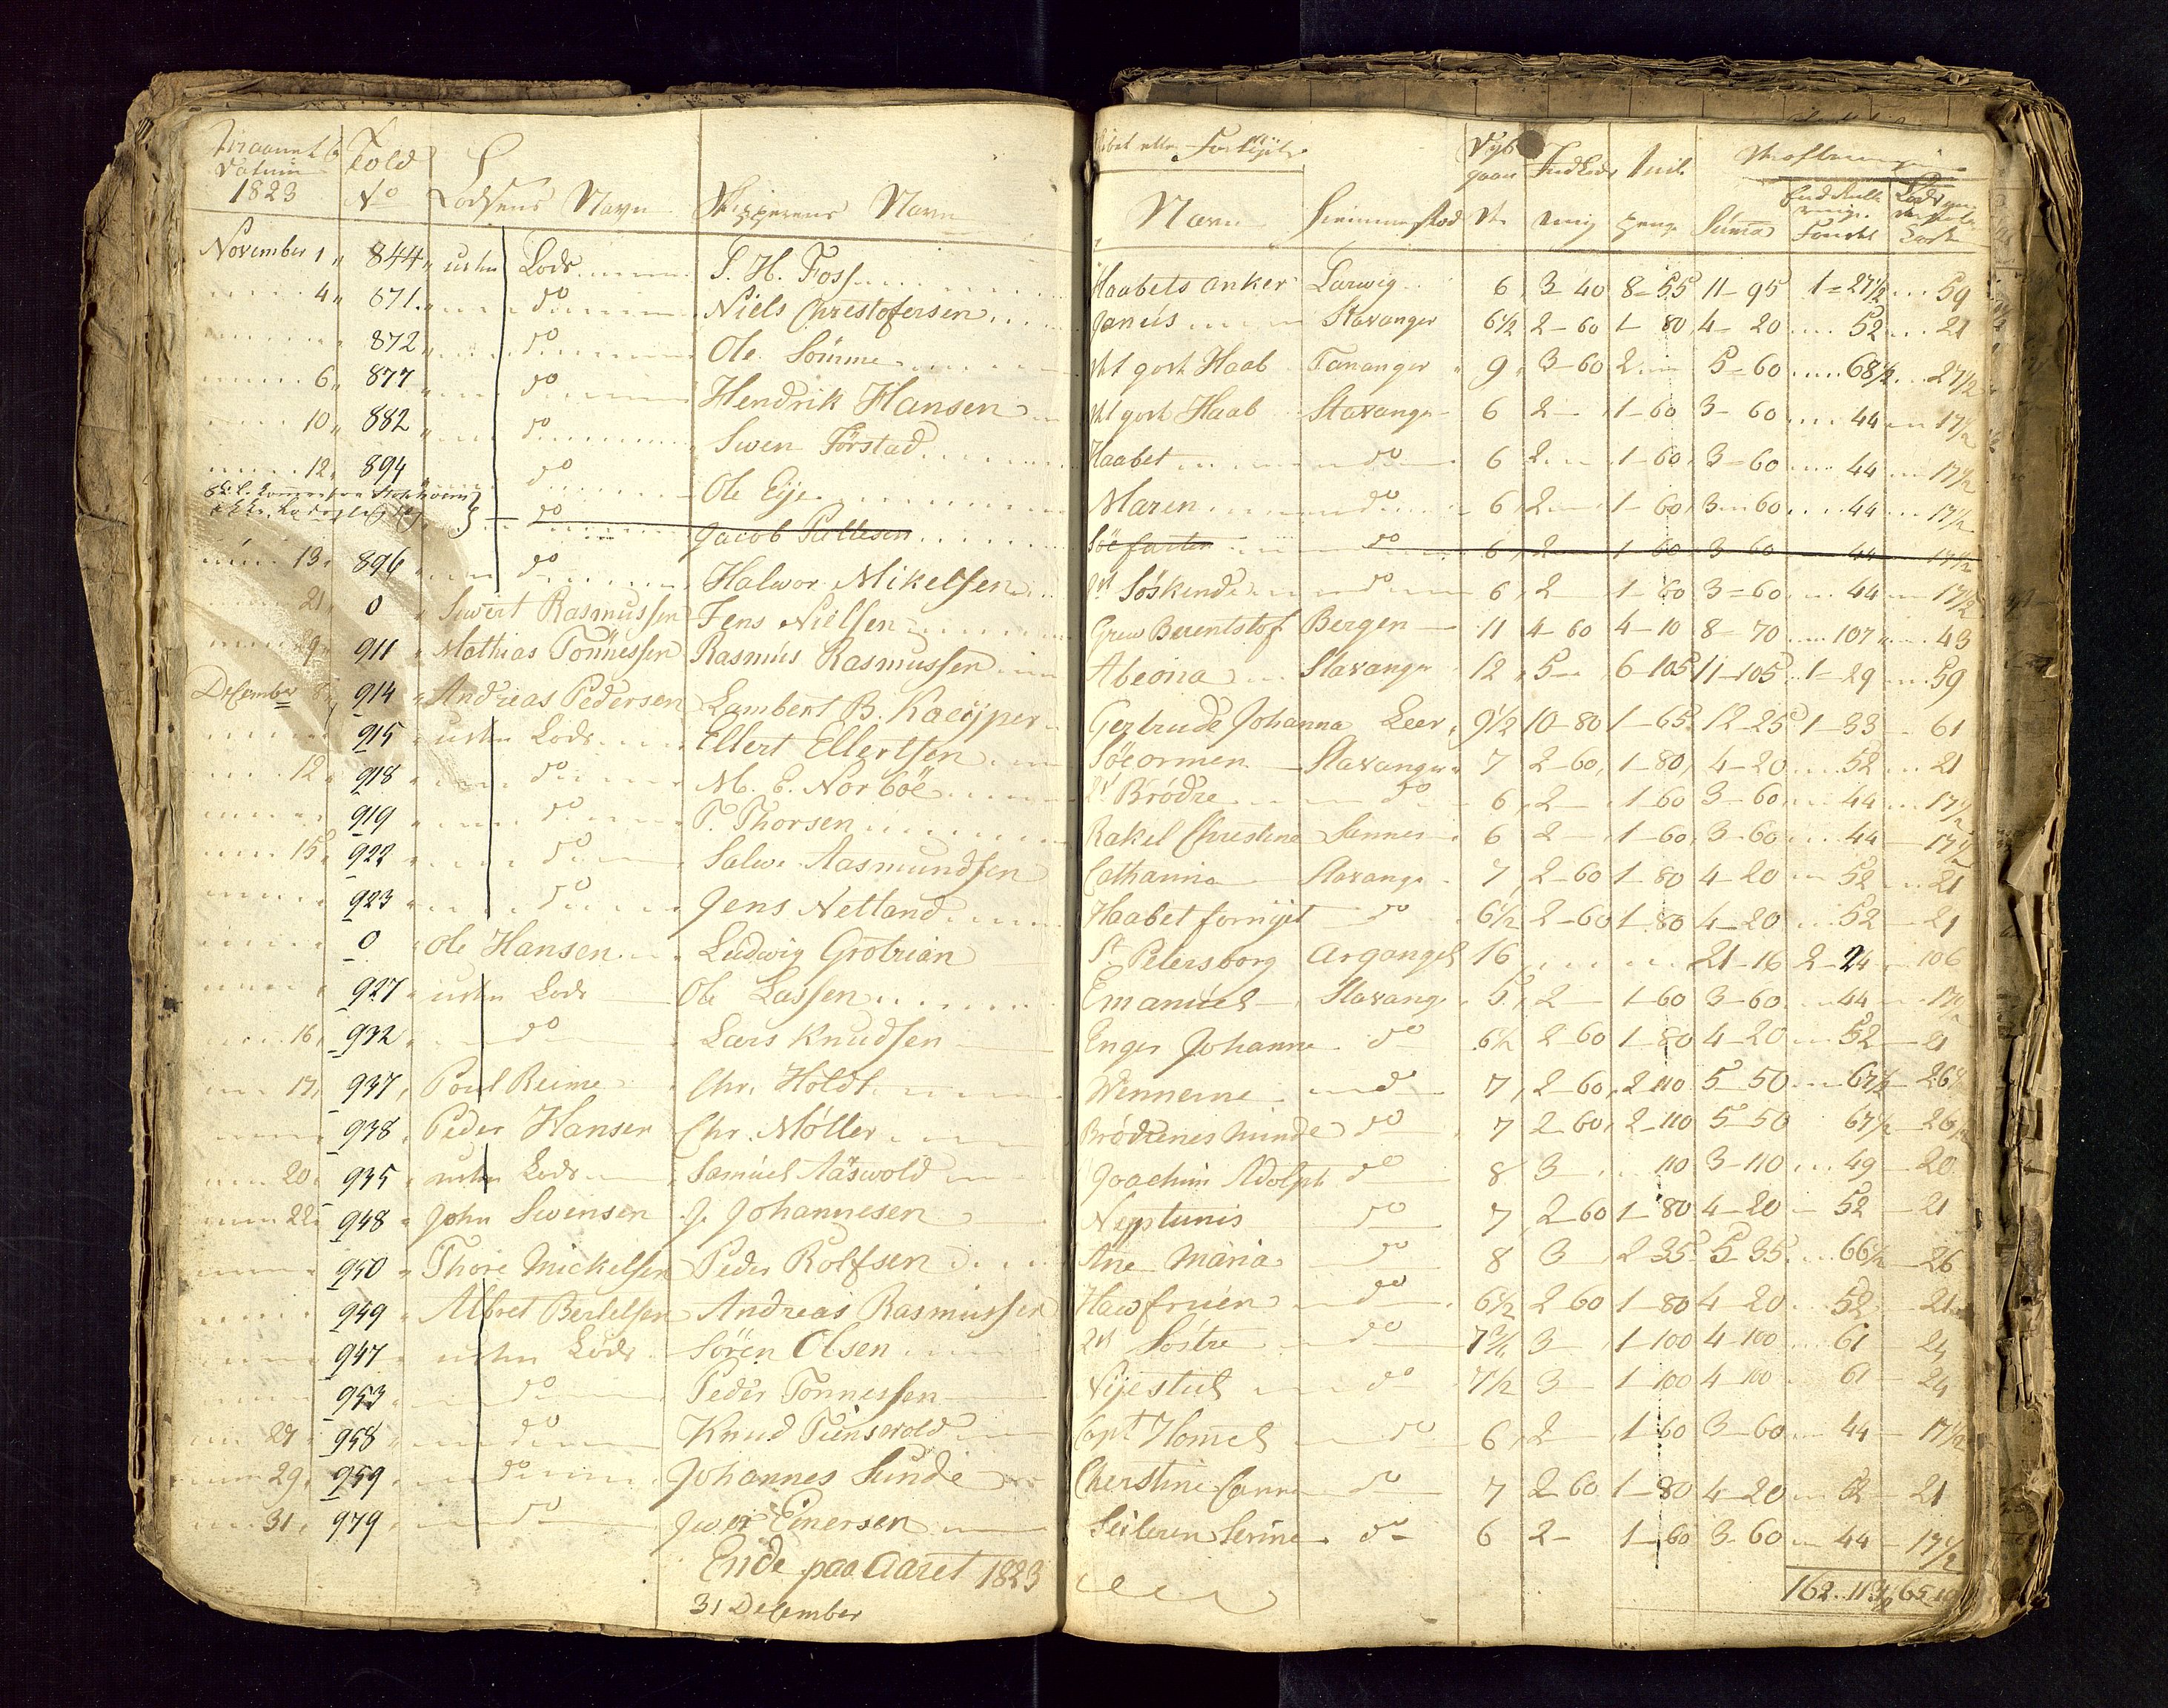 Datum
1823
Told
No
Lodsens Navn
Skipperens Navn
November 1 844 uden Lods S. H. Foss
4 871 do Niels Chrestofersen
872 do Ole Sømme
6 877 do Hendrik Hansen
10 882 do Swen Førstad
12 894 do Ole Eije
do Jacob Pallesen
13 896 do Halwor Mikelsen
21 0 Siwert Rasmussen Jens Nielsen
29 911 Mathias Tönnessen Rasmus Rasmussen
Desember 8 914 Andreas Pedersen Lambert B. Kaeyper
915 uden Lods Ellert Ellertsen
12 918 do M. E. Norböe
919 do T. Thorsen
15 922 do Salwe Aasmundsen
923 do Jens Netland
0 Ole Hansen Ludwig Grotrian
927 uden Lods Ole Lassen
16 932 do Lars Knudsen
17 937 Poul Reime Chr. Holdt
938 Peder Hansen Chr. Möller
20 935 uden Lods Samuel Aaswold
22 948 John Swensen J. Johannesen
950 Thore Mickelsen Peder Rolfsen
949 Albret Bertelsen Andreas Rasmussen
947 uden Lods Sören Olsen
953 do Peder Tonnessen
27 958 do Knud Tienswold
29 959 do Johannes Sunde
31 979 do Jwer Einersen
Ende paa Aaret 1823
31 Desember
Navn
Summa
Haabets Anker Larwig 6 3-40 8-55 11-95 1-27½ 59
Janus Stavanger 6½ 2-60 1-80 4-20 52 21
det gode Haab Tananger 9 3-60 2 5-60 68½ 27½
det gode Haab Stavanger 6 2 1-60 3-60 44 17½
Haabet do 6 2 1-60 3-60 44 17½
Maren do 6 2 1-60 3-60 44 17½
Söefarten do 6 2 1-60 3-60 44 17½
Söskende do 6 2 1-60 3-60 44 17½
Grew Berentstof Bergen 11 4-60 4-10 8-70 107 43
Abeona Stavanger 12 5 6-105 11-105 1-29 59
Gertrude Johanna Leer 9½ 10-80 1-65 12-25 1-33 61
Söeormen Stavanger 7 2-60 1-80 4-20 52 21
Brödre do 6 2 1-60 3-60 44 17½
Rakel Chrestine Sannes 6 2 1-60 3-60 44 17½
Catharina Stavanger 7 2-60 1-80 4-20 52 21
Haabet fornyet do 6½ 2-60 1-80 4-20 52 21
St Petersborg Argangel 16 21-16 2-24 106
Emanuel Stavanger 5 2 1-60 3-60 44 17½
Enger Johanne do 6½ 2-60 1-80 4-20 52 21
Wennerne do 7 2-60 2-110 5-50 67½ 26½
Brödrenes minde do 7 2-60 2-110 5-50 67½ 26½
Joachim Adolph do 8 3 110 3-110 49 20
Neptunis do 7 2-60 1-80 4-20 52 21
Ane Maria do 8 3 2-35 5-35 66½ 26
Hawfruen do 6½ 2-60 1-80 4-20 52 21
Söstre do 7½ 3 1-100 4-100 61 24
Nijestad do 7½ 3 1-100 4-100 61 24
do 6 2 1-60 3-60 44 17½
do 7 2-60 1-80 4-20 52 21
Seileren Serine do 6 2 1-60 3-60 44 17½
162